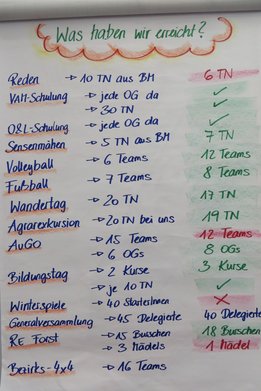 Was haben wir erreicht?
Reden → 10 TN aus BM 6 TN
VAH-Schulung → jede OG da ✓
→ 30 TN ✓
O&L-Schulung → jede OG da ✓
Sensenmähen → 5 TN aus BM 7 TN
Volleyball → 6 Teams 12 Teams
Fußball → 7 Teams 8 Teams
Wandertag → 20 TN 17 TN
Agrarexkursion → 20 TN bei uns 19 TN
AuGO → 15 Teams 12 Teams
→ 6 OGs 8 OGs
Bildungstag → 2 Kurse 3 Kurse
→ je 10 TN ✓
Winterspiele → 40 StarterInnen ✗
Generalversammlung → 45 Delegierte 40 Delegierte
RE Forst → 15 Burschen 18 Burschen
→ 3 Mädels 1 Mädel
Bezirks-4x4 → 16 Teams